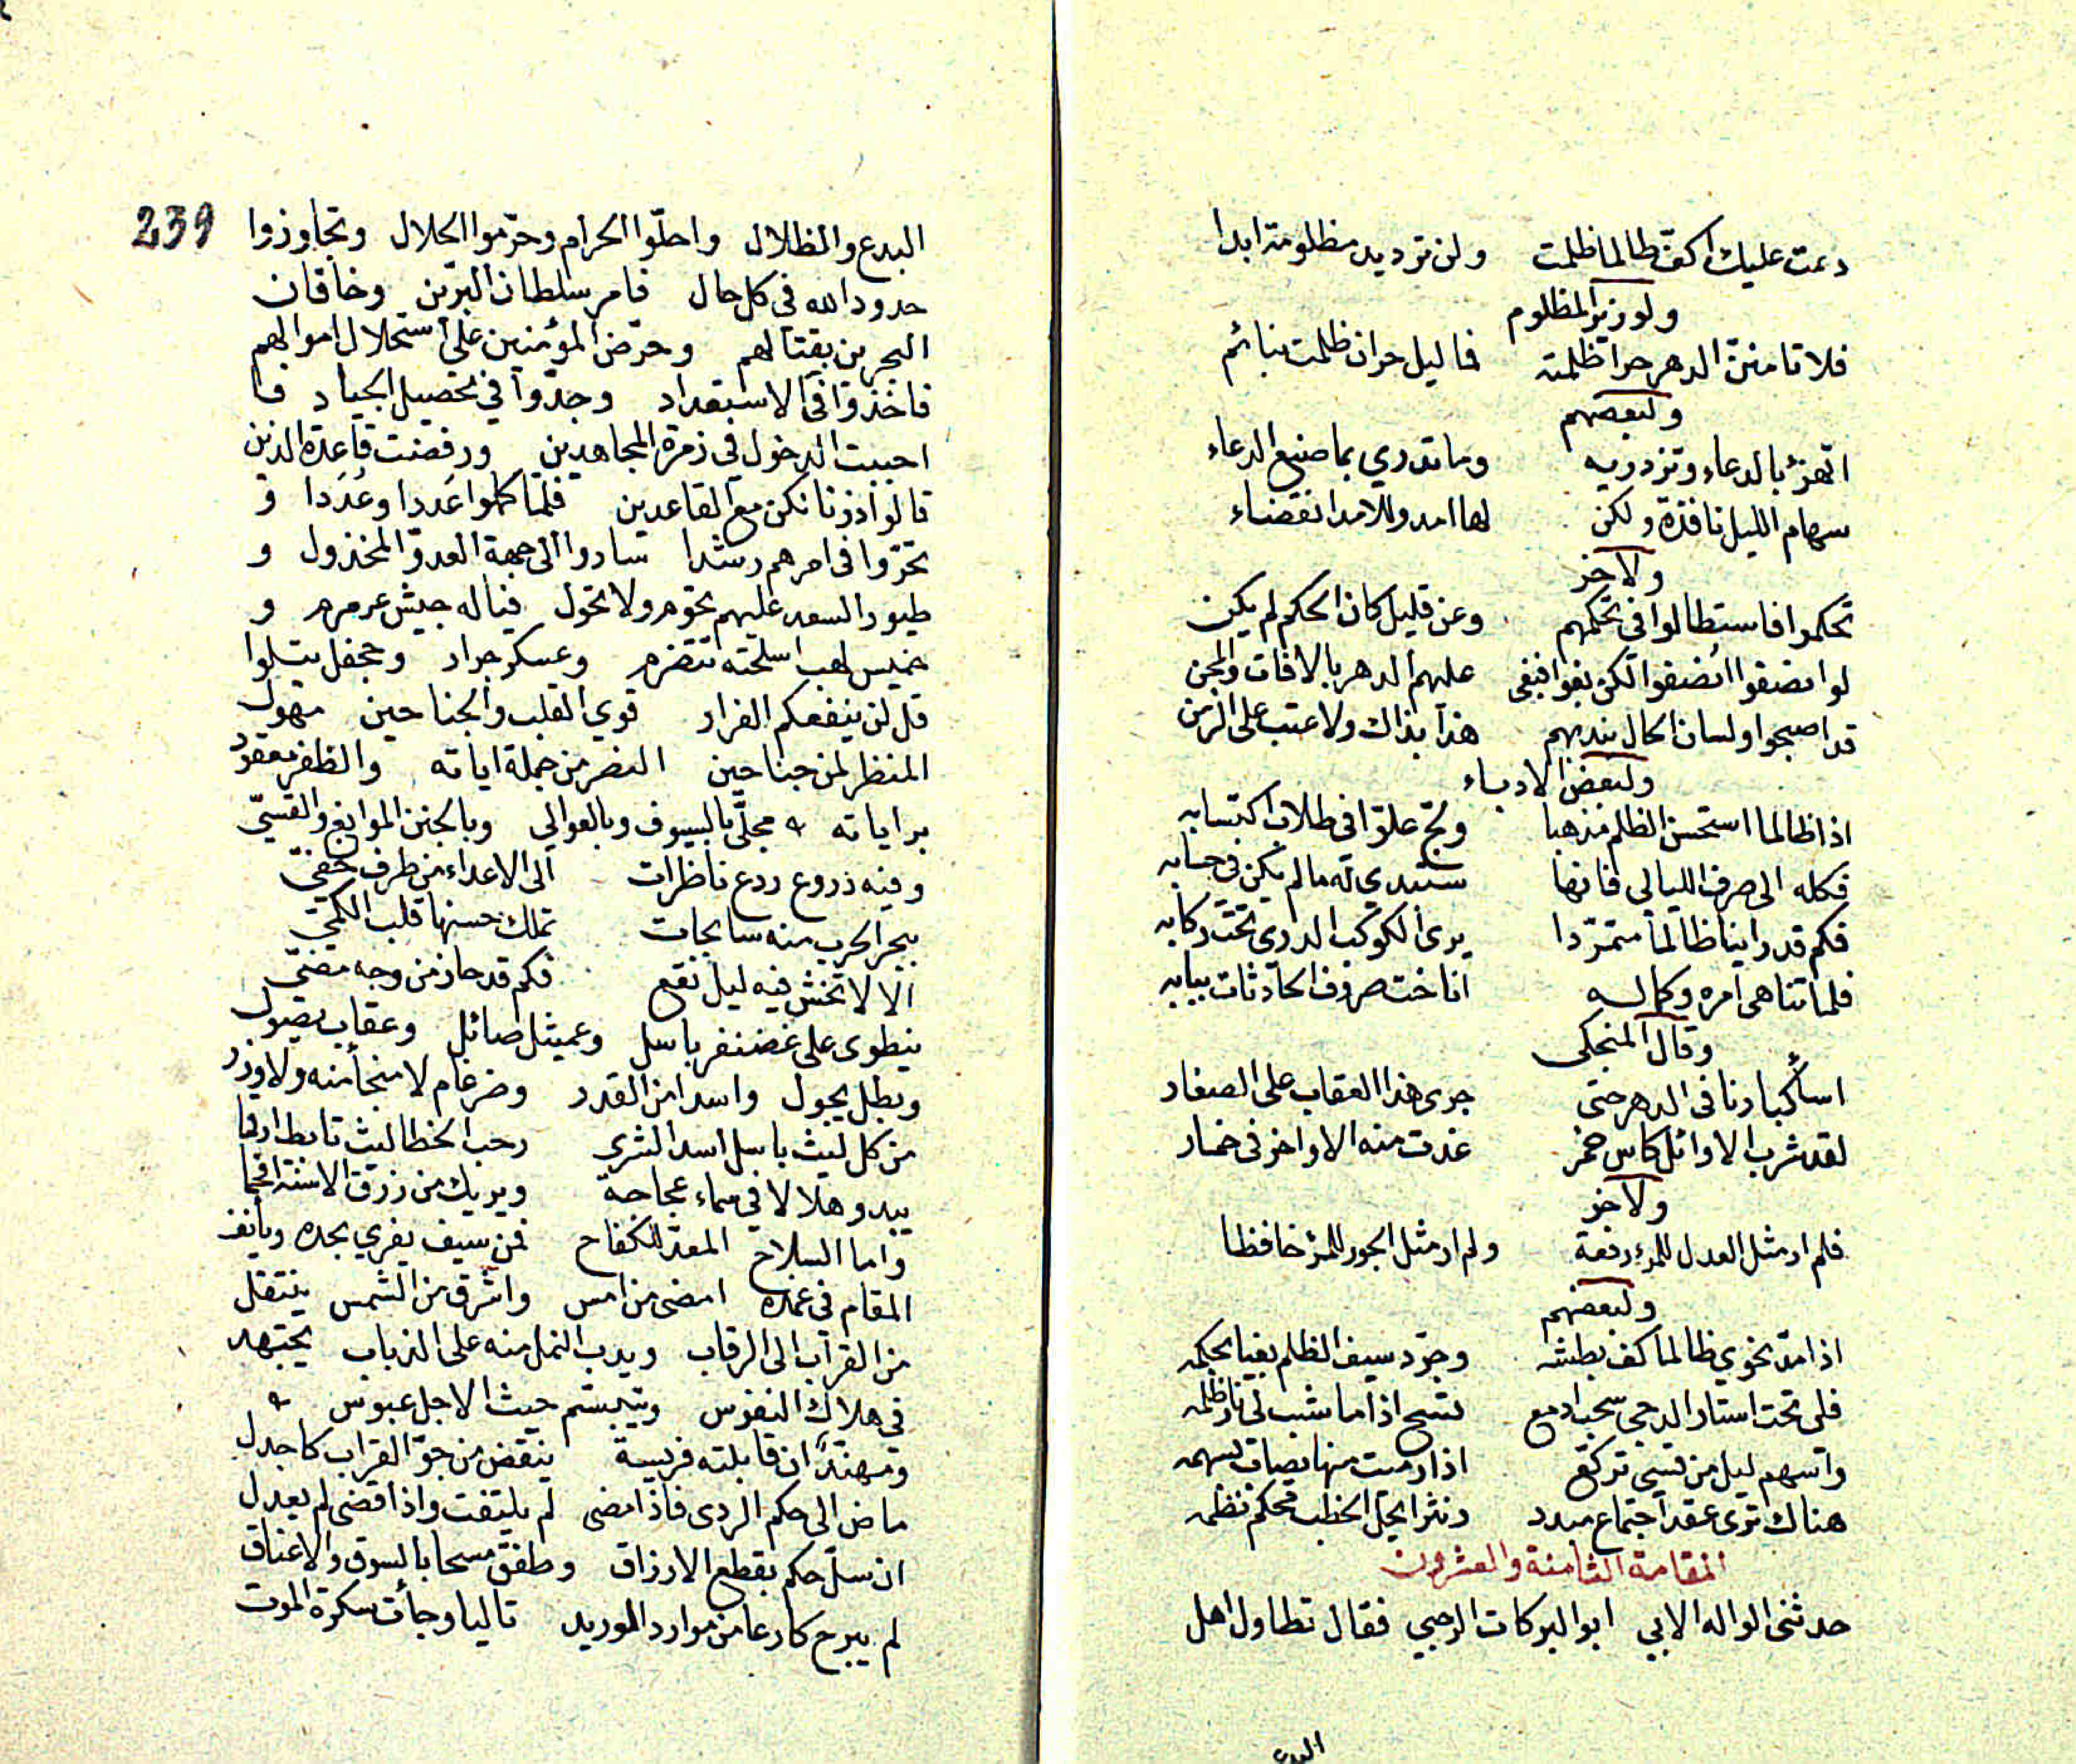 دعت عليك اكف طالما ظلمت ولن ترد يد مظلومة ابدا
ولوزير المظلوم
فلا تامنن الدهر حرا ظلمته فما ليل حر ان ظلمت بنائم
ولبعضهم
اتهزئ بالدعاء وتزدريه وما تدري بما صنع الدعاء
سهام الليل نافذة ولكن لها امد وللامد انقضاء
ولاخر
تحكموا فاستطالوا في تحكمهم وعن قليل كان الحكم لم يكن
لو انصفوا انصفوا لكن بغوا فبغى عليهم الدهر بالافات والمحن
قد اصبحوا ولسان الحال يندبهم هذا بذاك ولا عتب على الزمن
ولبعض الادباء
اذا ظالما استحسن الظلم مذهبا ولج علوا في طلاب اكتسابه
فكله الى صرف الليالي فانها ستبدي له ما لم يكن في حسابه
فكم قد راينا ظالما متمردا يرى الكوكب الدري تحت ركابه
فلما تناهى امره وكماله اناخت صروف الحادثات ببابه
وقال المنجكي
اسأ كبارنا في الدهر حتى جرى هذا العقاب على الصغار
لقد شرب الاوائل كاس خمر غدت منه الاواخر في خمار
ولاخر
فلم ار مثل العدل للمرء رفعة ولم ار مثل الجور للمرء خافظا
ولبعضهم
اذا مد نحوي ظالما كف بطشه وجرد سيف الظلم بغيا بحكمه
فلي تحت استار الدجى سحب ادمع تسح اذا ما شب لي نار ظلمه
واسهم ليل من قسي تركع اذا رميت منها يصاب بسهمه
هناك ترى عقد اجتماع مبدد ونثرا يحل الخطب محكم نظمه
المقامة الثامنة والعشرون
حدثنى الواله الابي ابو البركات الرحبي فقال تطاول اهل
البدع والظلال واحلّوا الحرام وحرّموا الحلال وتجاوزوا
حدود الله في كل حال فامر سلطان البرّين وخاقان
البحرين بقتالهم وحرّض المؤمنين على استحلال اموالهم
فاخذوا في الاستعداد وجدّوا في تحصيل الجياد فا
احببت الدخول في زمرة المجاهدين ورفضت قاعدة الذين
قالوا ذرنا نكن مع القاعدين فلما كملوا عَددا وعُدَدا و
تحرّوا في امرهم رشدا ساروا الى جهة العدوّ المخذول و
طيور السعد عليهم تحوم ولا تحول فياله جيش عرمرم و
خميس لهب اسلحته تتضرم وعسكر جرار وجحفل يتلوا
قل لن ينفعكم الفرار قوي القلب والجناحين مهول
المنظر لمن جناحين النصر من جملة اياته والظفر معقود
براياته ؞ محلّى بالسيوف وبالعوالي وبالجنن الموانع والقسيّ
وفيه ذروع ردع ناظرات الى الاعداء من طرف خفيّ
ببحر الحرب منه سابحات تملك حسنها قلب الكميّ
الا لا تخش فيه ليل نقع فكم قد حاز من وجه مضيّ
ينطوى على غضنفر باسل وعميثل صائل وعقاب يصول
وبطل يجول واسدا من القدر وضرغام لا منجأ منه ولا وزر
من كل ليث باسل اسد الشرى رحب الخطا ليث تابط ارقما
يبدو هلالا في سماء عجاجة ويريك من زرق الاسنة انجما
واما السلاح المعد للكفاح فمن سيف يفري بحده ويأنف
المقام في غمده امضى من امس واشرق من الشمس ينتقل
من القراب الى الرقاب ويدب النمل منه على الذباب يجتهد
في هلاك النفوس ويتبسم حيث الاجل عبوس ؞
ومهنّدٍ ان قابلته فريسة ينقض من جوّ القراب كاجدل
ماض الى حكم الردى فاذا مضى لم يلتفت واذا قضى لم يعدل
ان سلّ حكم بقطع الارزاق وطفق مسحا بالسوق والاعناق
لم يبرح كارعا من موارد الوريد تاليا وجأت سكرة الموت